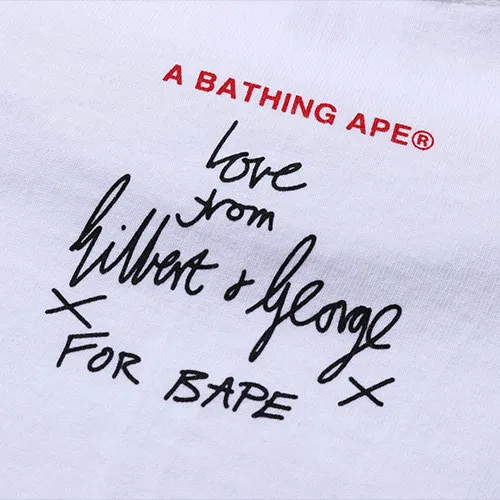 A BATHING APE®
Love
from
Gilbert & George
X
FOR BAPE X